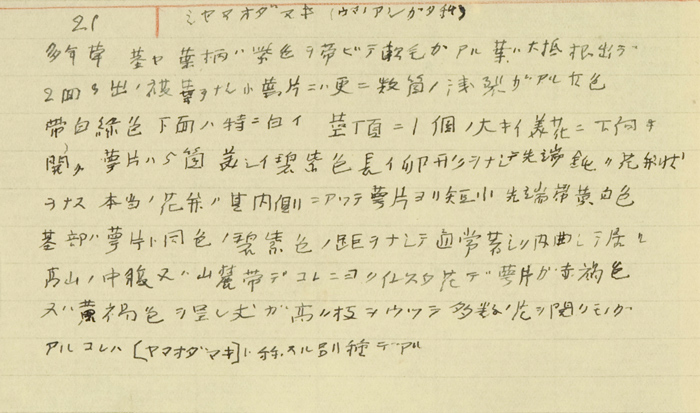 21 ミヤマオダマキ(ウマノアシガタ科)
多年草 茎ヤ葉柄ハ紫色ヲ帯ビテ軟毛ガアル 葉ハ大抵根出デ
2回3出ノ複葉ヲナシ小葉片ニハ更ニ数箇ノ浅裂ガアル 灰色
帯白緑色下面ハ特ニ白イ 茎頂ニ1個ノ大キイ美花ニ下向キ
開ク 萼片ハ5箇美シイ碧紫色長イ卵形ヲナシ先端鈍ク花弁状
ヲナス 本当ノ花弁ハ其内側ニアツテ萼片ヨリ短小 先端帯黄白色
基部ハ萼片ト同色ノ碧紫色ノ距ヲナシテ通常著シク内曲シテ居ル
高山ノ中腹又ハ山麓帯デコレニヨク似タ花デ萼片ガ赤褐色
又ハ黄褐色ヲ呈シ丈ガ高ク枝ヲウツテ多数ノ花ヲ開クモノガ
アル コレハ[ヤマオダマキ]ト称スル別種デアル